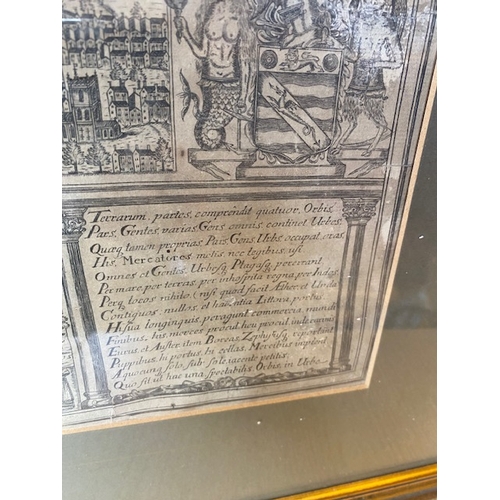 Terrarum partes comprendit quatuor Orbis,
Pars, Gentes varias, Gens omnis continet Urbes
Quæq tamen proprias Pars, Gens, Urbs occupat oras
His, Mercatores nullis nec legibus usi
Omnes et Gentes, Urbesq, Plagasq, pererrant
Per mare, per terras, per inhospita regna, per Indos
Perq locos nihilo (nisi quod facit Æther et Unda)
Contiguos, nullos, et Littora, portus
Hi sua longinquis peragunt commercia mundi
Finibus, his merces procul heu procul
Eurus, et Auster, item Boreas Zephyrusq
Puppibus in portus, in cellas, Mercibus implent
Æquor sole sub sole jacente petitis
Quo fit ut hac una spectabilis Orbis in Urbe